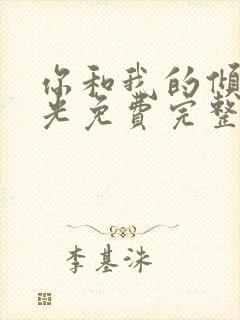 你和我的倾
光免费完整
李基洙